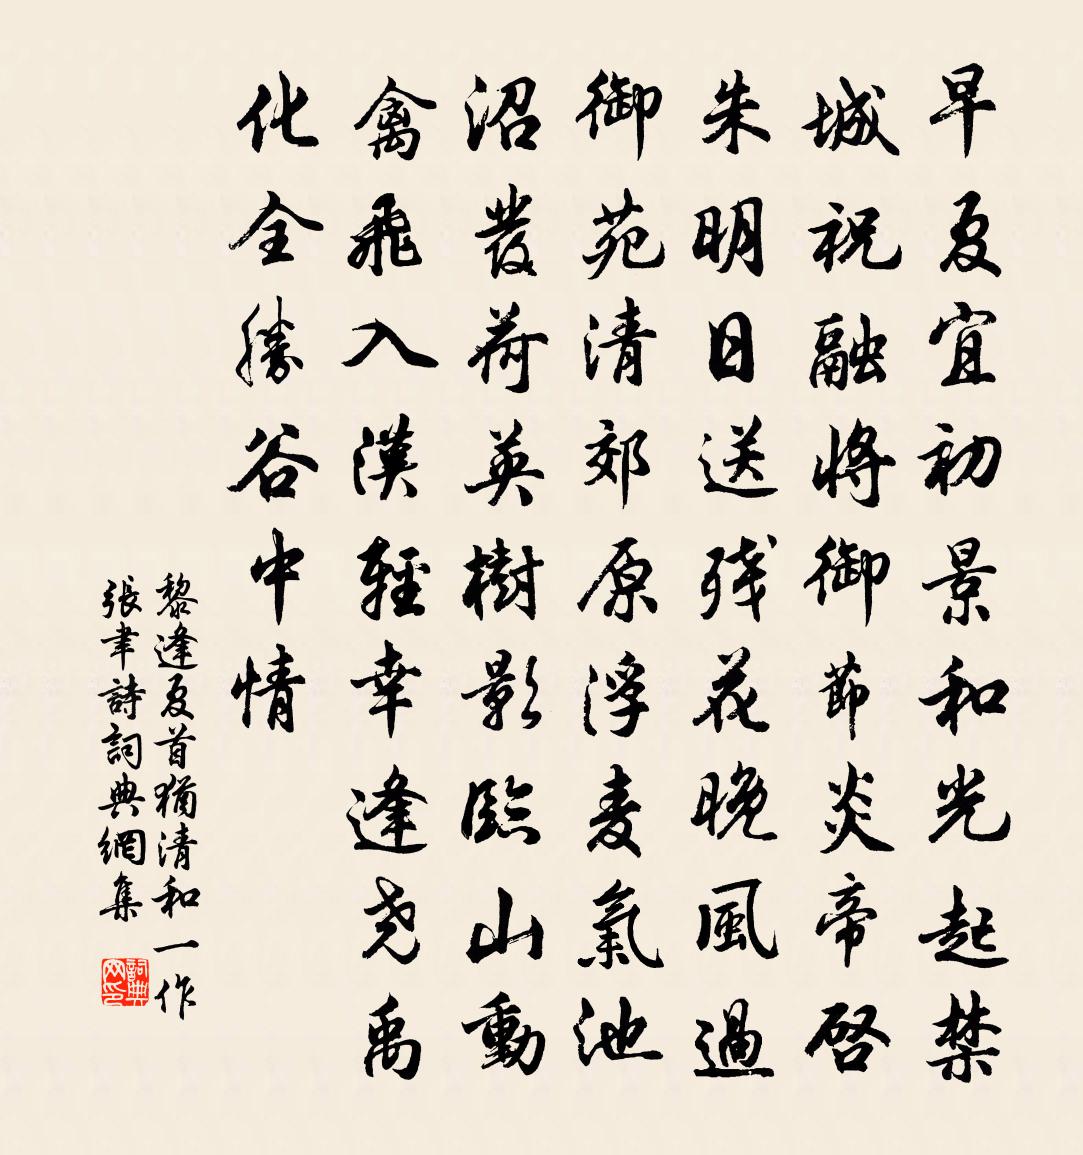 早夏宜初景和光起禁
城祝融将御節炎帝啓
朱明日送残花晚風過
御苑清郊原浮麦氣池
沼發荷英樹影臨山動
禽飛入漢輕幸逢尧禹
化全勝谷中情
黎逢夏首猶清和一作
張聿詩詞典網集
詞典
网印